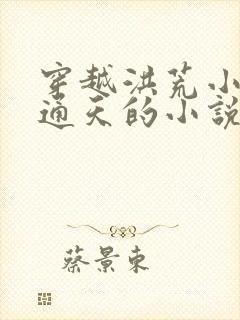 穿越洪荒小
通天的小説
蔡景東